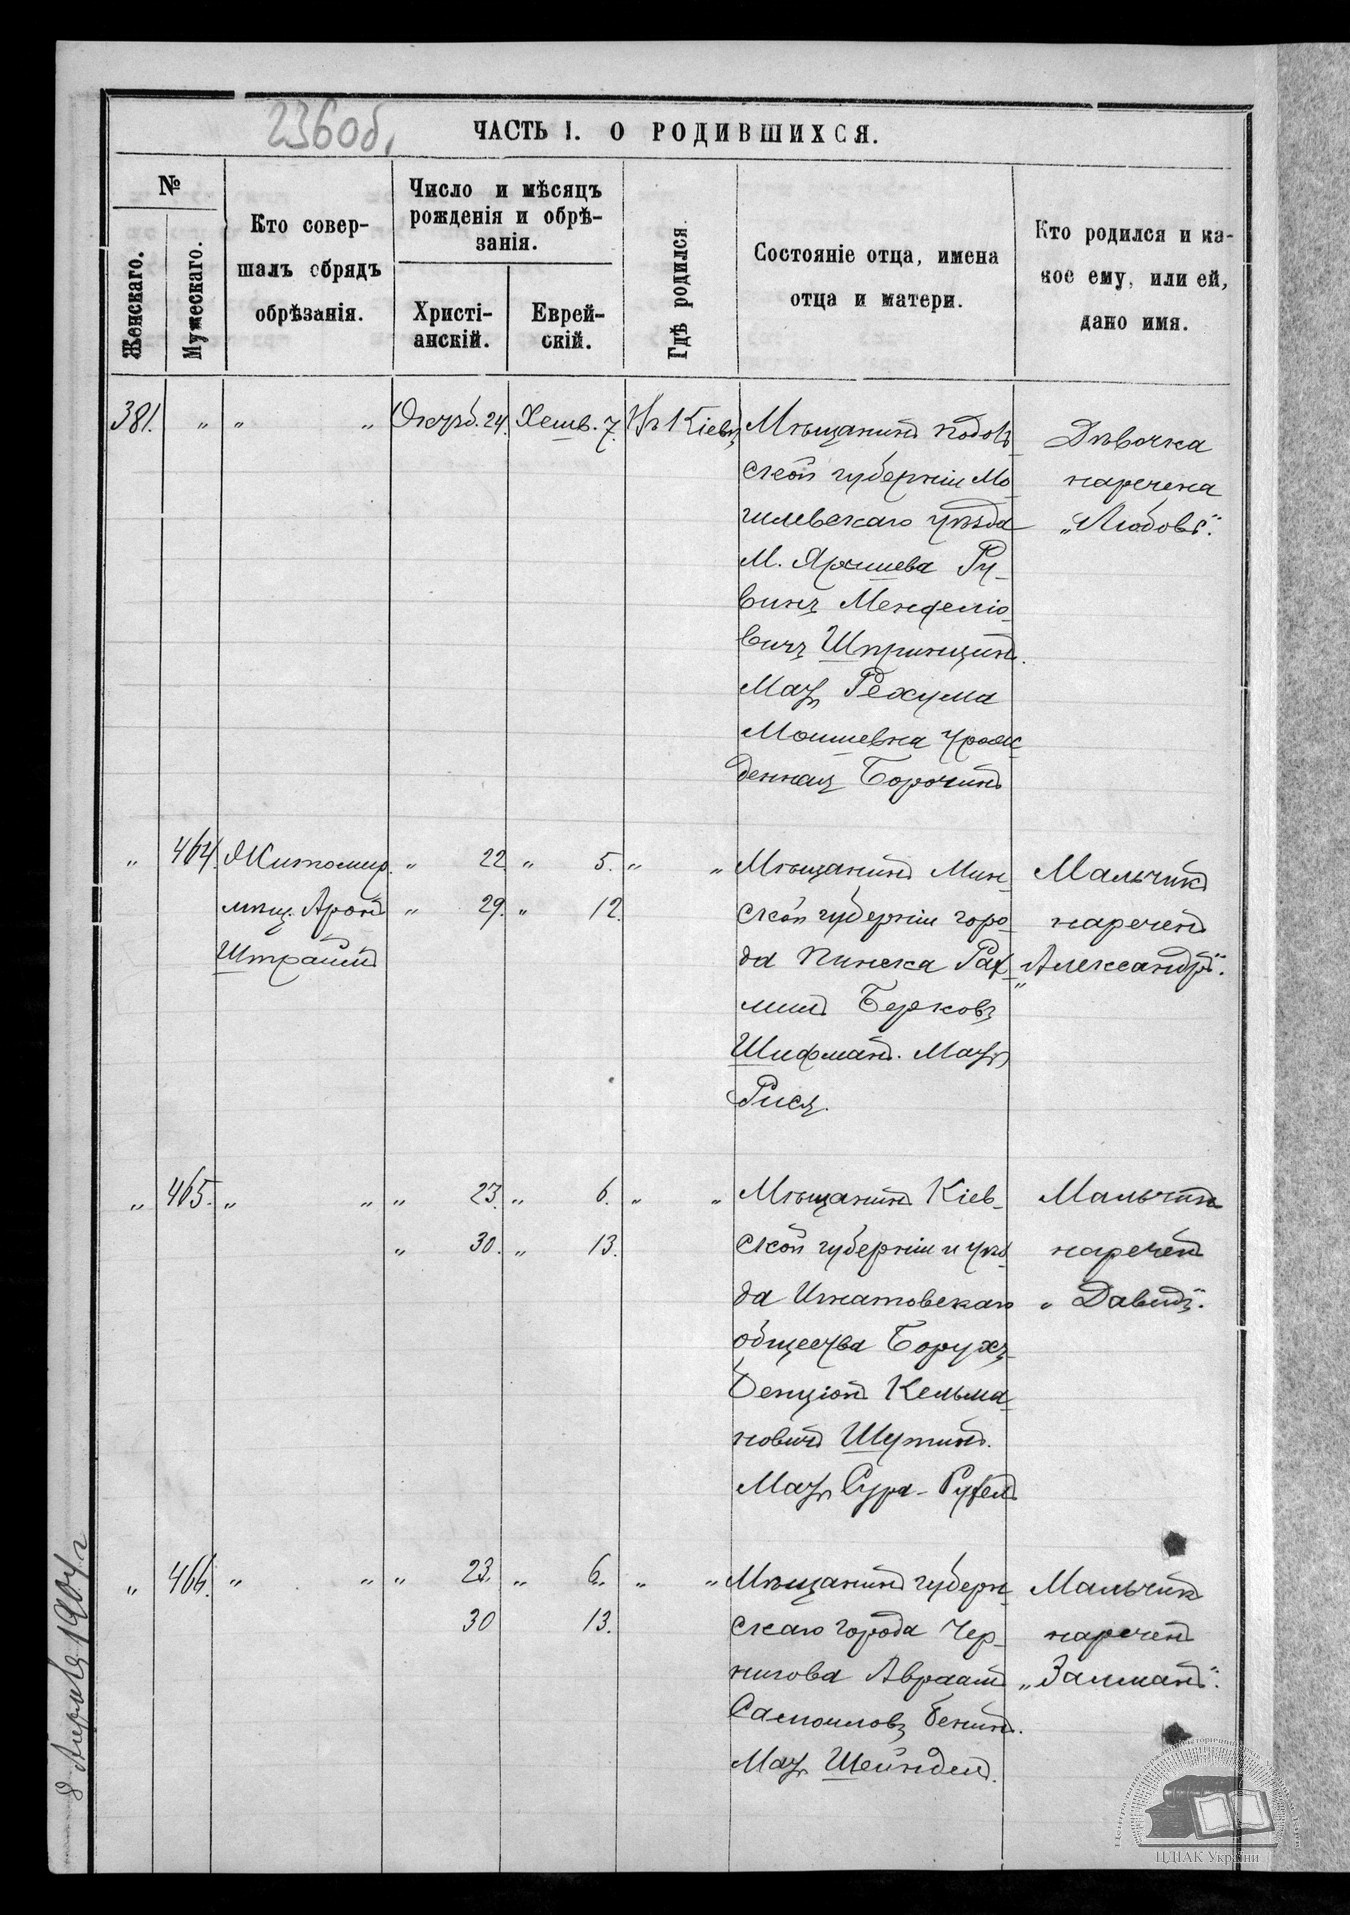 236об.
ЧАСТЬ I. О РОДИВШИХСЯ.
№
Женскаго.
Мужескаго.
Кто совер-
шалъ обрядъ
обрѣзанія.
Число и мѣсяцъ
рожденія и обрѣ-
занія.
Христі-
анскій.
Еврей-
скій.
Гдѣ родился.
Состояніе отца, имена
отца и матери.
Кто родился и ка-
кое ему, или ей,
дано имя.
381. „ „ „ Октяб. 24. Хешв. 7. Въ Кіевѣ
Мѣщанинъ Подоль-
ской губерніи Мо-
гилевскаго уѣзда
М. Ярышева Ру-
винъ Менделіо-
вичъ Шпринцинъ.
Мать Рехума
Мошиевна урож-
денная Борочинъ
Дѣвочка
наречена
„Любовь“.
„ 464. Житомир. „ 22 „ 5. „ „
мѣщ. Аронъ „ 29. „ 12.
Штраймъ
Мѣщанинъ Мин-
ской губерніи горо-
да Пинска Рах-
миль Берковъ
Шифманъ. Мать
Рися.
Мальчикъ
нареченъ
„Александръ“.
„ 465. „ „ „ 23. „ 6. „ „
„ 30. „ 13.
Мѣщанинъ Кіев-
ской губерніи и уѣз-
да Игнатовскаго
общества Борухъ-
Бенціонъ Кельма-
новичъ Шутинъ.
Мать Сура-Рухель
Мальчикъ
нареченъ
„Давидъ“.
„ 466. „ „ „ 23. „ 6. „ „
30 13.
Мѣщанинъ губерн-
скаго города Чер-
нигова Авраамъ
Самоиловъ Бенинъ.
Мать Шейндель.
Мальчикъ
нареченъ
„Залманъ“.
8 Апрѣля 1904 г
ЦДІАК України